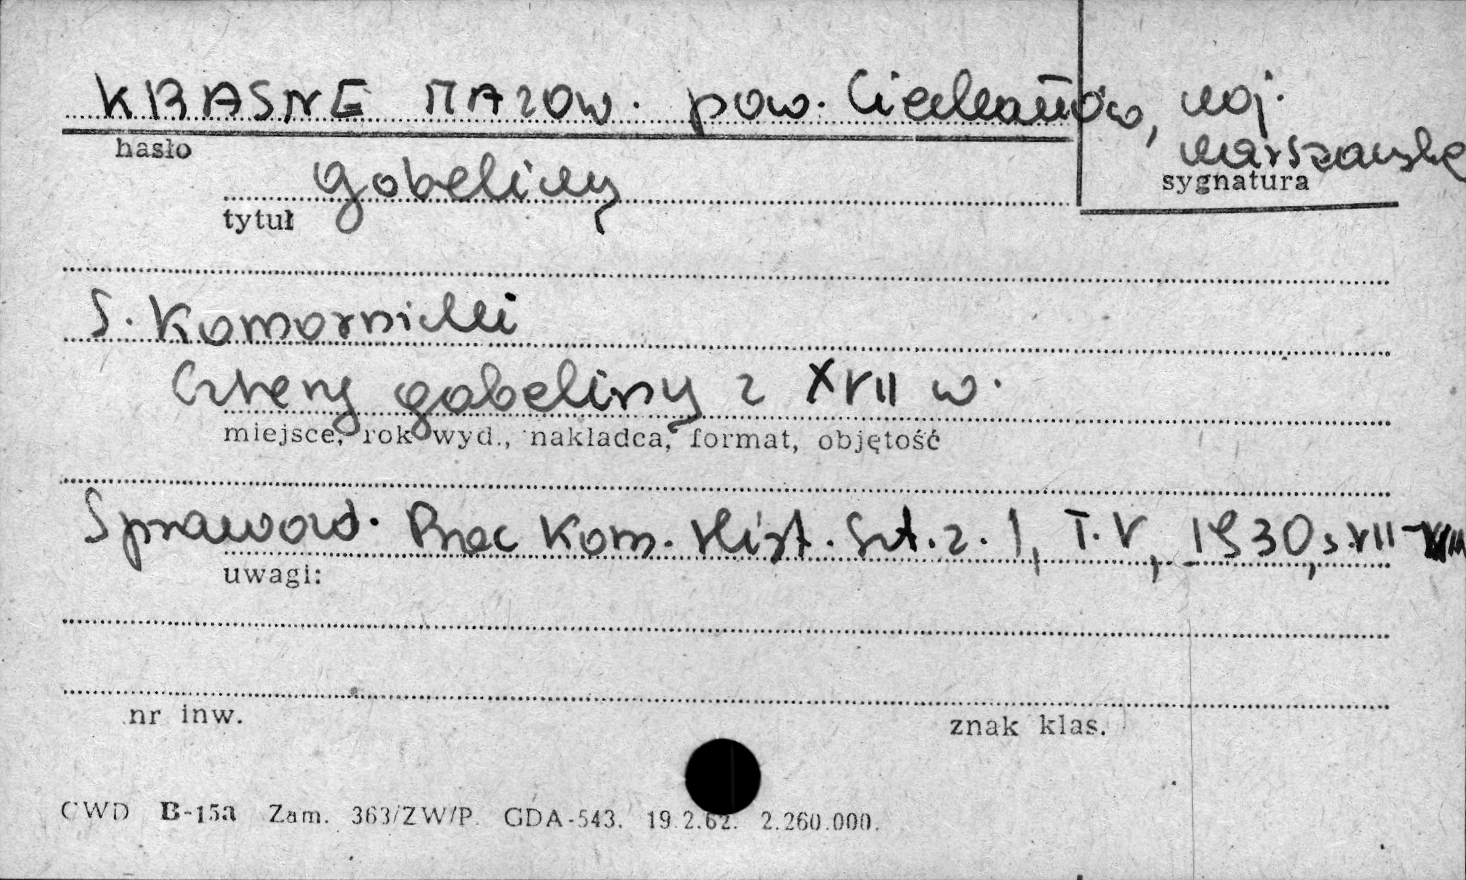 KRASNE MAZOW. pow. Ciechanów, woj.
warszawskie
hasło
sygnatura
gobeliny
tytuł
S. Komornicki
Cztery gobeliny z XVII w.
miejsce, rok wyd., nakładca, format, objętość
Sprawozd. Prac Kom. Hist. Szt. z. 1, T. V, 1930, s. VII-
uwagi:
nr inw.
znak klas.
CWD B-15a Zam. 363/ZW/P. GDA-543. 19.2.62. 2.260.000.